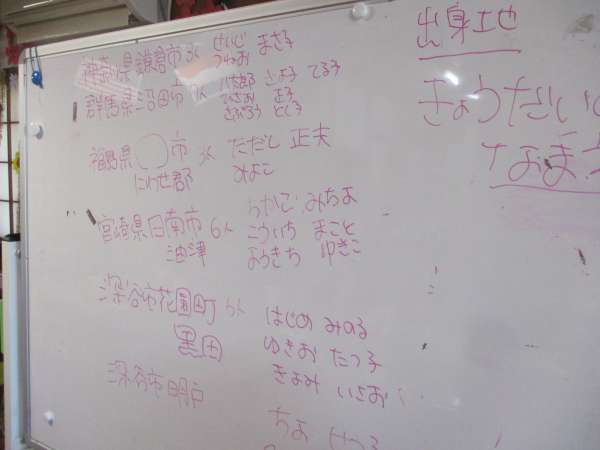 出身地
きょうだい
なま
神奈川県鎌倉市 3人 せいじ まさ子
つねお
群馬県沼田市 ちよ子 てる子
ひさお
さぶろう とし子
福島県〇市 3人 ただし 正夫
にわせ郡 みよこ
宮崎県日南市 6人 ちかこ みちよ
油津 こういち まこと
ようきち ゆきこ
深谷市花園町 6人 はじめ みのる
黒田 ゆきお たつ子
きよみ いさお
深谷市明戸
ちよ せつ子